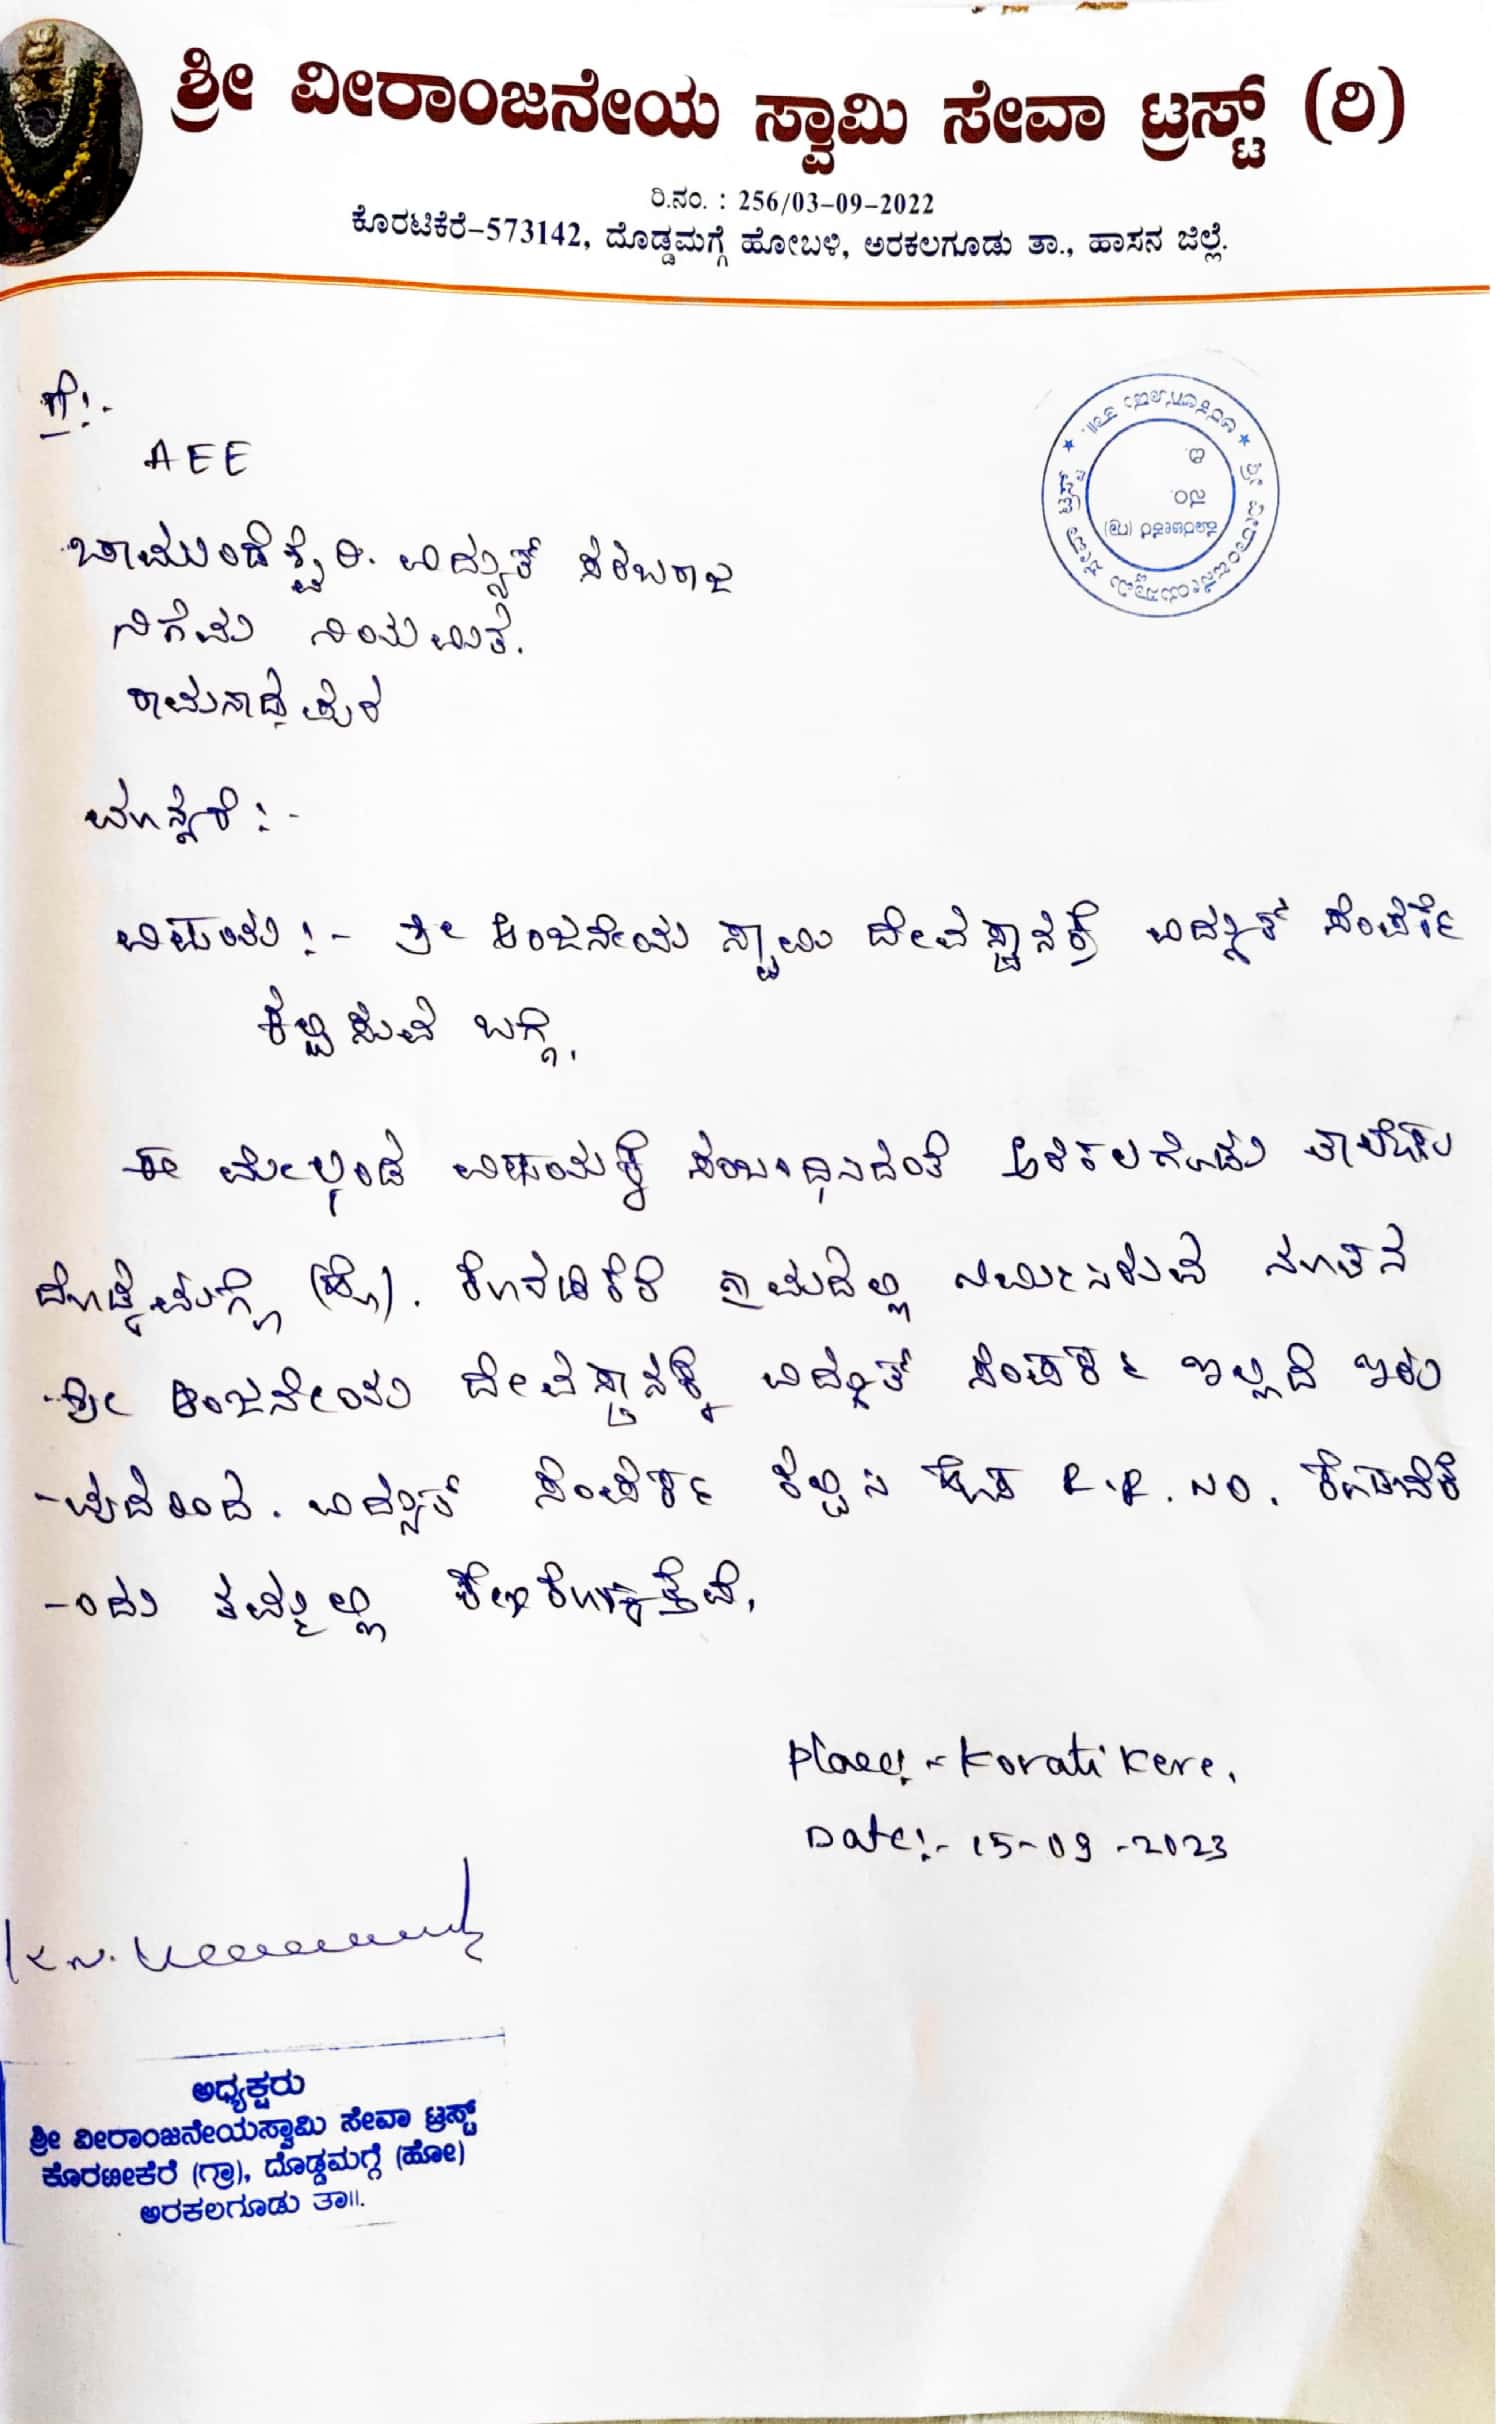 ಶ್ರೀ ವೀರಾಂಜನೇಯ ಸ್ವಾಮಿ ಸೇವಾ ಟ್ರಸ್ಟ್ (ರಿ)
ರಿ.ನಂ. : 256/03-09-2022
ಕೊರಟಿಕೆರೆ-573142, ದೊಡ್ಡಮಗ್ಗೆ ಹೋಬಳಿ, ಅರಕಲಗೂಡು ತಾ., ಹಾಸನ ಜಿಲ್ಲೆ.
ಗೆ:-
AEE
ಚಾಮುಂಡೆಶ್ವರಿ. ವಿದ್ಯುತ್ ಸರಬರಾಜ
ನಿಗಮ ನಿಯಮಿತ.
ರಾಮನಾಥಪುರ
ಮಾನ್ಯರೆ:-
ವಿಷಯ:- ಶ್ರೀ ಆಂಜನೇಯ ಸ್ವಾಮಿ ದೇವಸ್ಥಾನಕ್ಕೆ ವಿದ್ಯುತ್ ಸಂಪರ್ಕ
ಕಲ್ಪಿಸುವ ಬಗ್ಗೆ.
ಈ ಮೇಲ್ಕಂಡ ವಿಷಯಕ್ಕೆ ಸಂಬಂಧಿಸಿದಂತೆ ಅರಕಲಗೂಡು ತಾಲೂಕು
ದೊಡ್ಡಮಗ್ಗೆ (ಹೋ). ಕೊರಟಿಕೆರೆ ಗ್ರಾಮದಲ್ಲಿ ನಿರ್ಮಿಸಿರುವ ನೂತನ
ಶ್ರೀ ಆಂಜನೇಯ ದೇವಸ್ಥಾನಕ್ಕೆ ವಿದ್ಯುತ್ ಸಂಪರ್ಕ ಇಲ್ಲದೆ ಇರು
-ವುದರಿಂದ. ವಿದ್ಯುತ್ ಸಂಪರ್ಕ ಕಲ್ಪಿಸಿ R.R. NO. ಕೊಡಬೇಕೆ
-ಂದು ತಮ್ಮಲ್ಲಿ ಕೇಳಿಕೊಳ್ಳುತ್ತೇವೆ.
Place:- Koratikere.
Date:- 15-09-2023
ಅಧ್ಯಕ್ಷರು
ಶ್ರೀ ವೀರಾಂಜನೇಯಸ್ವಾಮಿ ಸೇವಾ ಟ್ರಸ್ಟ್
ಕೊರಟೀಕೆರೆ (ಗ್ರಾ), ದೊಡ್ಡಮಗ್ಗೆ (ಹೋ)
ಅರಕಲಗೂಡು ತಾ॥.